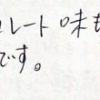 ュレート味も
です。